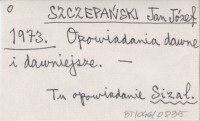 o SZCZEPAŃSKI Jan Józef
1973. Opowiadania dawne
i dawniejsze. —
Tu opowiadanie Sizal.